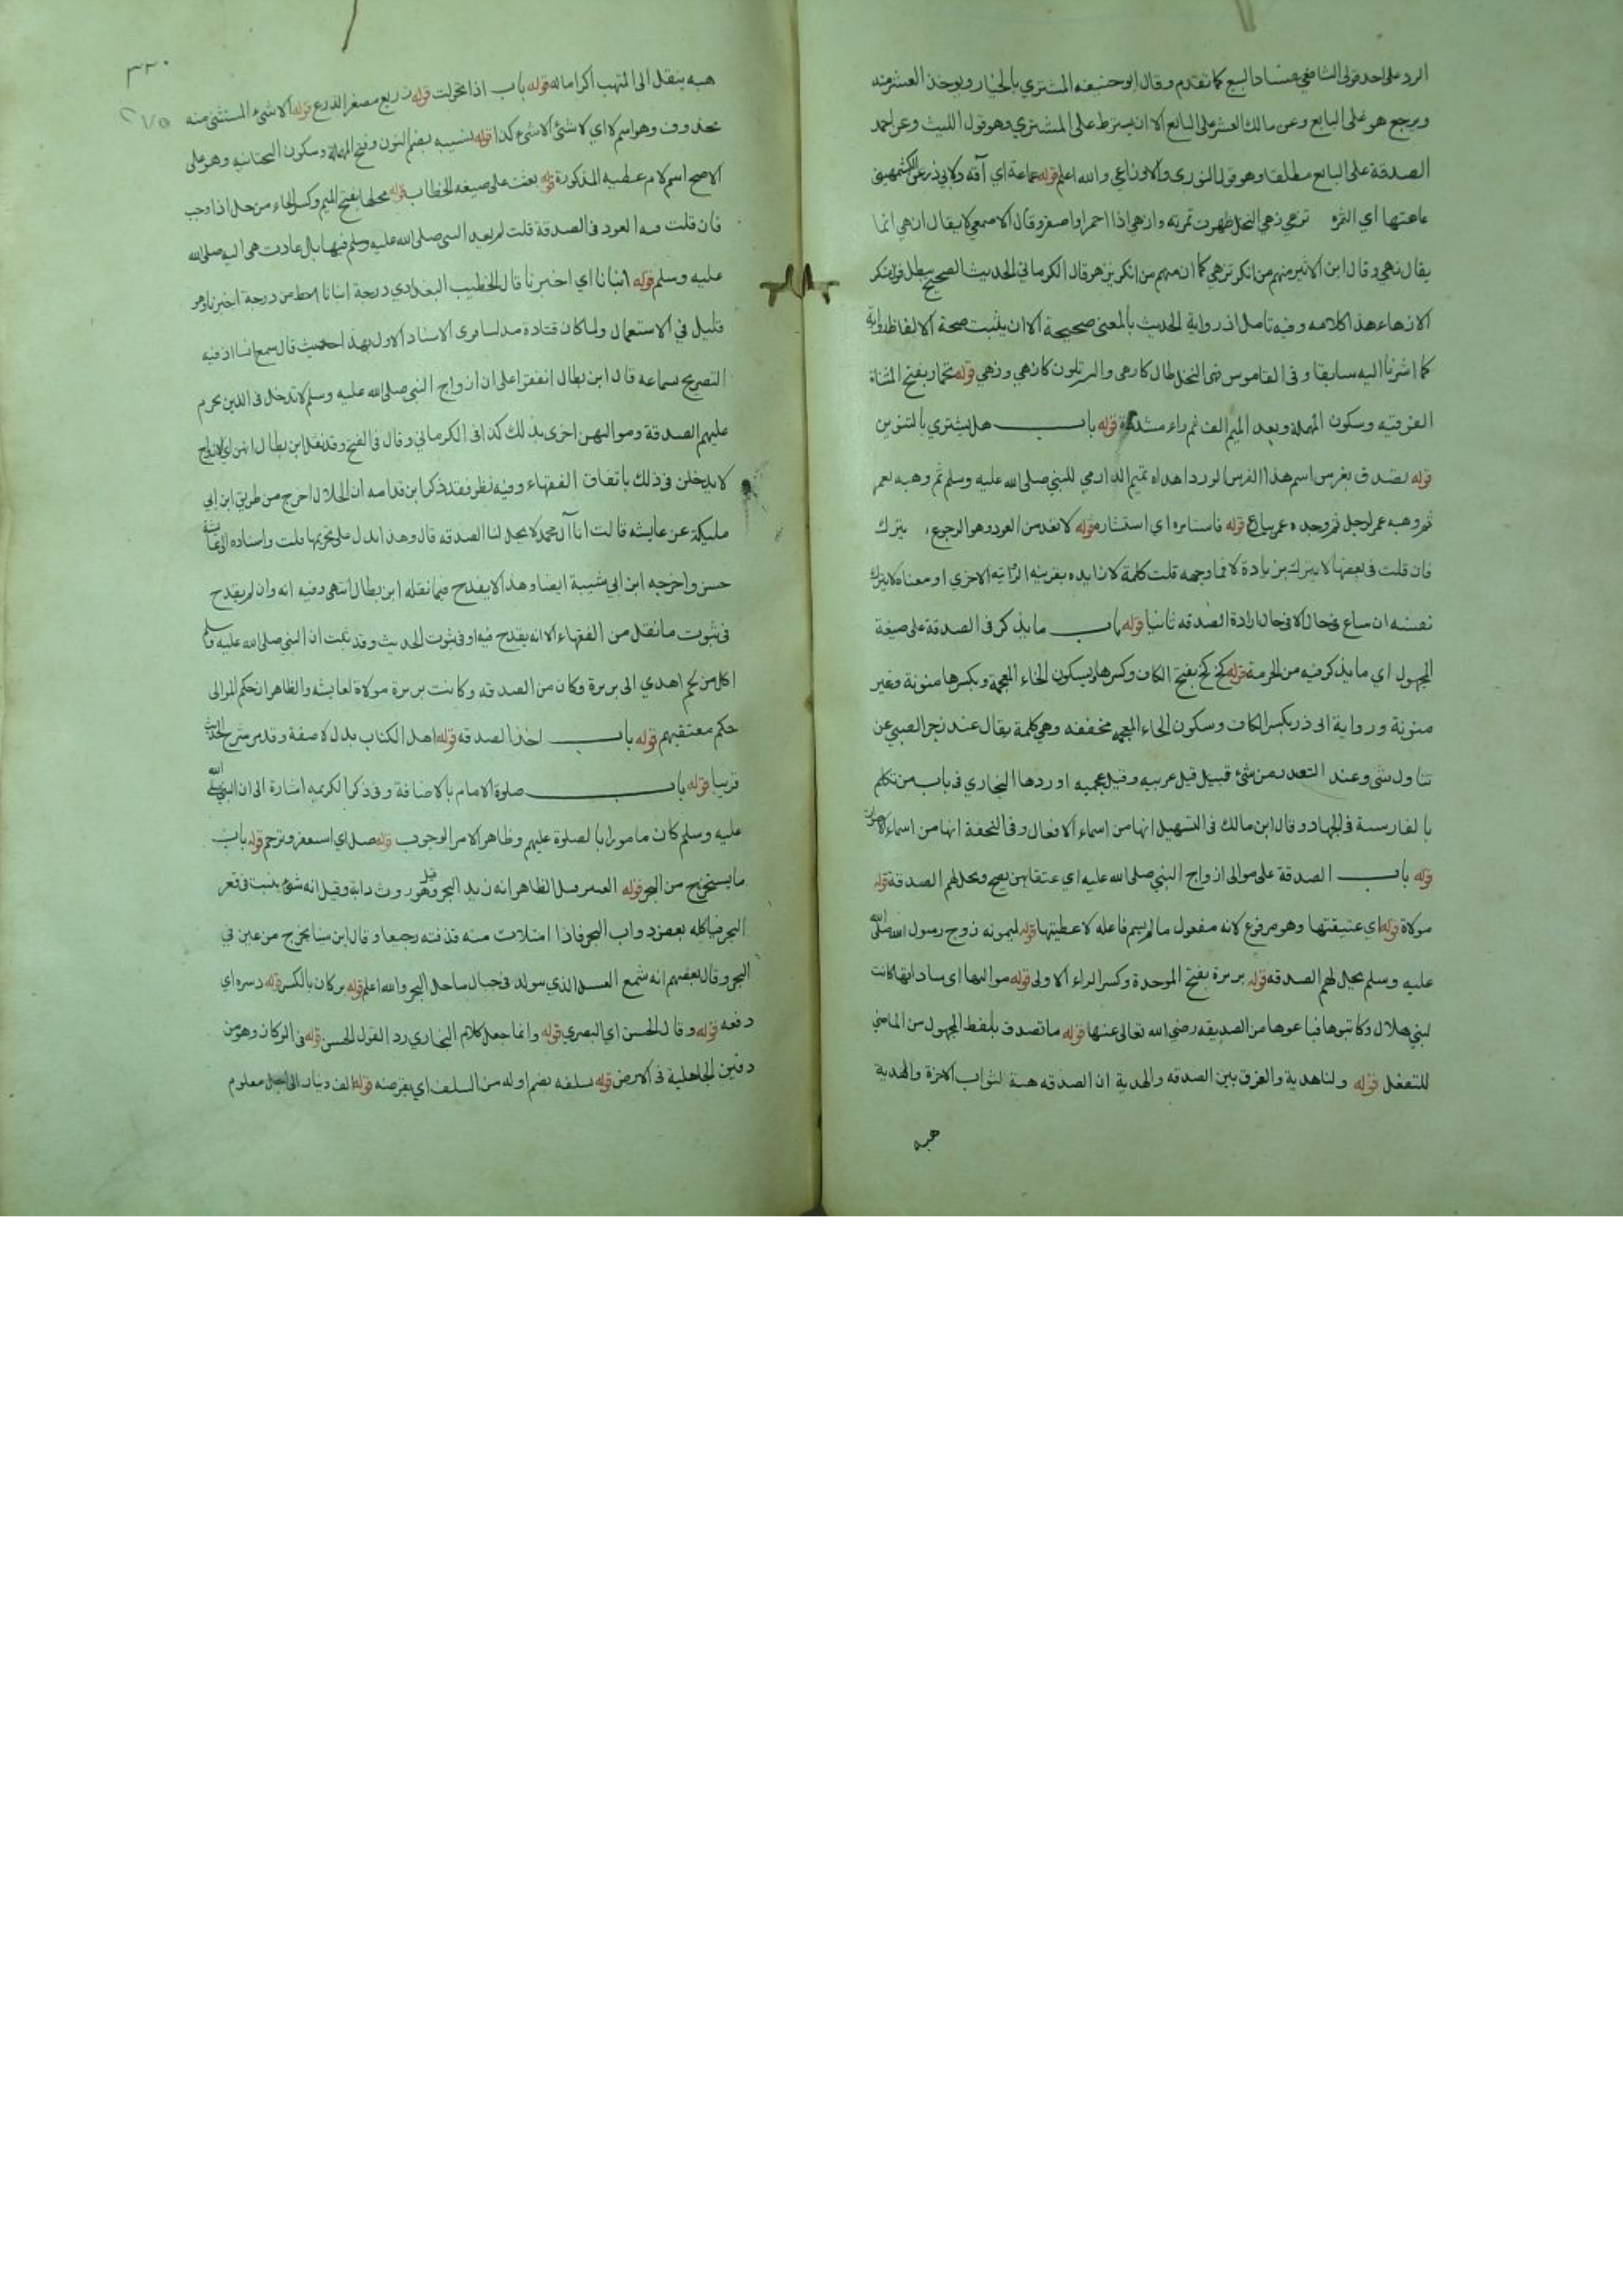 الرد على احد قولى الشافعي بفساد البيع كما تقدم وقال ابو حنيفة المشتري بالخيار ويوخذ العشر منه
ويرجع هو على البايع وعن مالك العشر على البائع الا ان يشترط على المشتري وهو قول الليث وعن احمد
الصدقة على البايع مطلقا وهو قول الثورى والاوزاعي والله اعلم قوله عاهة اي آفة ولابي ذر عن الكشميهني
عاهتها اي الثمرة تزهي زهي النخل ظهرت ثمرته وازهي اذا احمر او اصفر وقال الاصمعي لا يقال ازهي انما
يقال زهي وقال ابن الاثير منهم من انكر تزهي كما ان منهم من انكر يزهو قال الكرماني الحديث الصحيح يبطل قول منكر
الازهاء هذا كلامه وفيه تامل اذ رواية الحديث بالمعنى صحيحة الا ان يثبت صحة الالفاظ رواية
كما اشرنا اليه سابقا وفى القاموس زهى النخل طال كازهى والبسر تلون كازهي وزهي قوله تحمار بفتح المثناة
الفوقيه وسكون المهملة وبعد الميم الف ثم راء مشددة قوله باب هل يشتري بالتنوين
قوله تصدق بفرس اسم هذا الفرس الورد اهداه تميم الداري للنبي صلى الله عليه وسلم ثم وهبه لعمر
ثم وهبه عمر لرجل ثم وجده عمر يباع قوله فاستامره اي استشاره قوله لا تعد من العود وهو الرجوع يترك
فان قلت فى بعضها لا يترك بزيادة لا فما وجهه قلت كلمة لا زايده بقرينه الرواية الاخرى او معناه لا يترك
نفسه ان ساع فى حال الا فى حال ارادة الصدقه ثانيا قوله باب ما يذكر فى الصدقة على صيغة
المجهول اي ما يذكر فيه من الحرمة قوله كخ كخ بفتح الكاف وكسرها وبسكون الخاء المعجمة وبكسرها منونة وغير
منونة ورواية ابى ذر بكسر الكاف وسكون الخاء المعجمه مخففه وهي كلمة يقال عند زجر الصبي عن
تناول شى وعند التقدر من شئ قبيل قيل عربيه وقيل عجميه اوردها البخاري فى باب من تكلم
بالفارسية فى الجهاد وقال ابن مالك فى التسهيل انها من اسماء الافعال وفى التحفة انها من اسماء الاصوات
قوله باب الصدقة على موالى ازواج النبي صلى الله عليه اي عتقايهن يصح ويحل لهم الصدقة قوله
مولاة قوله اي عتيقتها وهو مرفوع لانه مفعول ما لم يسم فاعله لاعطيتها قوله لميمونه زوج رسول الله صلى الله
عليه وسلم يحل لهم الصدقه قوله بريرة بفتح الموحدة وكسر الراء الاولى قوله مواليها اي ساداتها كانت
لبني هلال وكاتبوها فباعوها من الصديقه رضي الله تعالى عنها قوله ما تصدق بلفظ المجهول من الماضي
للتفعل قوله ولنا هدية والفرق بين الصدقه والهدية ان الصدقه هبة لثواب الاخرة والهدية
هبه
٣٣٠
٢٧٥
هبه ينقل الى المتهب اكراما له قوله باب اذا تحولت قوله زريع مصغر الذرع قوله الا شىء المستثنى منه
محذوف وهو اسم لا اي لا شئ الا شئ كذا قوله نسيبه بضم النون وفتح المهملة وسكون التحتانيه وهو على
الاصح اسم لام عطيه المذكورة قوله بعثت على صيغه الخطاب قوله محلها بفتح الميم وكسر الحاء من حل اذا وجب
فان قلت فيه العود فى الصدقة قلت لم يعد النبي صلى الله عليه وسلم فيها بل عادت هى اليه صلى الله
عليه وسلم قوله انبانا اي اخبرنا قال الخطيب البغدادي درجة انبانا احط من درجة اخبرنا وهو
قليل في الاستعمال ولما كان قتادة مدلسا قوى الاسناد الاول بهذا حيث قال سمع انسا اذ فيه
التصريح بسماعه قال ابن بطال اتفقوا على ان ازواج النبي صلى الله عليه وسلم لا تدخل فى الذين حرم
عليهم الصدقة ومواليهن احرى بذلك كذا فى الكرماني وقال فى الفتح وقد نقل ابن بطال انهن اي الازواج
لا يدخلن فى ذلك باتفاق الفقهاء وفيه نظر فقد ذكر ابن قدامه ان الخلال اخرج من طريق ابن ابي
مليكة عن عايشه قالت انا آل محمد لا يحل لنا الصدقه قال وهذا يدل على تحريمها قلت واسناده الى عائشة
حسن واخرجه ابن ابي شيبة ايضا وهذا لا يقدح فيما نقله ابن بطال انتهى وفيه انه وان لم يقدح
فى ثبوت ما نقل من الفقهاء الا انه يقدح فيه او فى ثبوت الحديث وقد ثبت ان النبي صلى الله عليه وسلم
اكل من لحم اهدي الى بريرة وكان من الصدقه وكانت بريرة مولاة لعايشه والظاهر ان حكم الموالى
حكم معتقيهم قوله باب اخذ الصدقه قوله اهل الكتاب بدل لا صفة وقد مر شرح الحديث
قريبا قوله باب صلوة الامام بالاضافة وفى ذكر الكريمه اشارة الى ان النبي صلى الله
عليه وسلم كان مامورا بالصلوة عليهم وظاهر الامر الوجوب قوله صل اي استغفر وترحم قوله باب
ما يستخرج من البحر قوله العنبر قيل الظاهر انه زبد البحر وقيل هو روث دابة وقيل انه شئ ينبت فى قعر
البحر فياكله بعض دواب البحر فاذا امتلات منه قذفته رجيعا وقال ابن سينا يخرج من عين في
البحر وقال بعضهم انه شمع العسل الذي سولد فى جبال ساحل البحر والله اعلم قوله بركان بالكسر قوله دسره اي
دفعه قوله وقال الحسن اي البصري قوله وانما جعل كلام البخاري رد القول الحسن قوله فى الركاز وهو من
دفين الجاهلية فى الارض قوله يسلفه بضم اوله من السلف اي يقرضه قوله الف دينار الى اجل معلوم